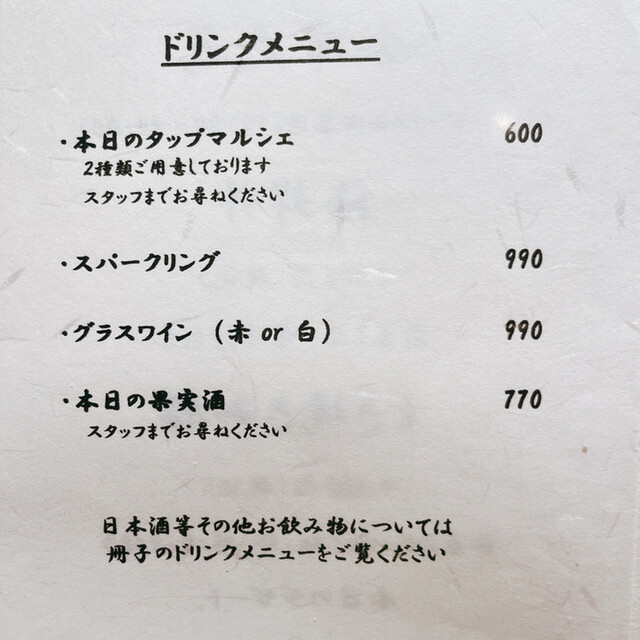 ドリンクメニュー
・本日のタップマルシェ 600
2種類ご用意しております
スタッフまでお尋ねください
・スパークリング 990
・グラスワイン（赤 or 白） 990
・本日の果実酒 770
スタッフまでお尋ねください
日本酒等その他お飲み物については
冊子のドリンクメニューをご覧ください